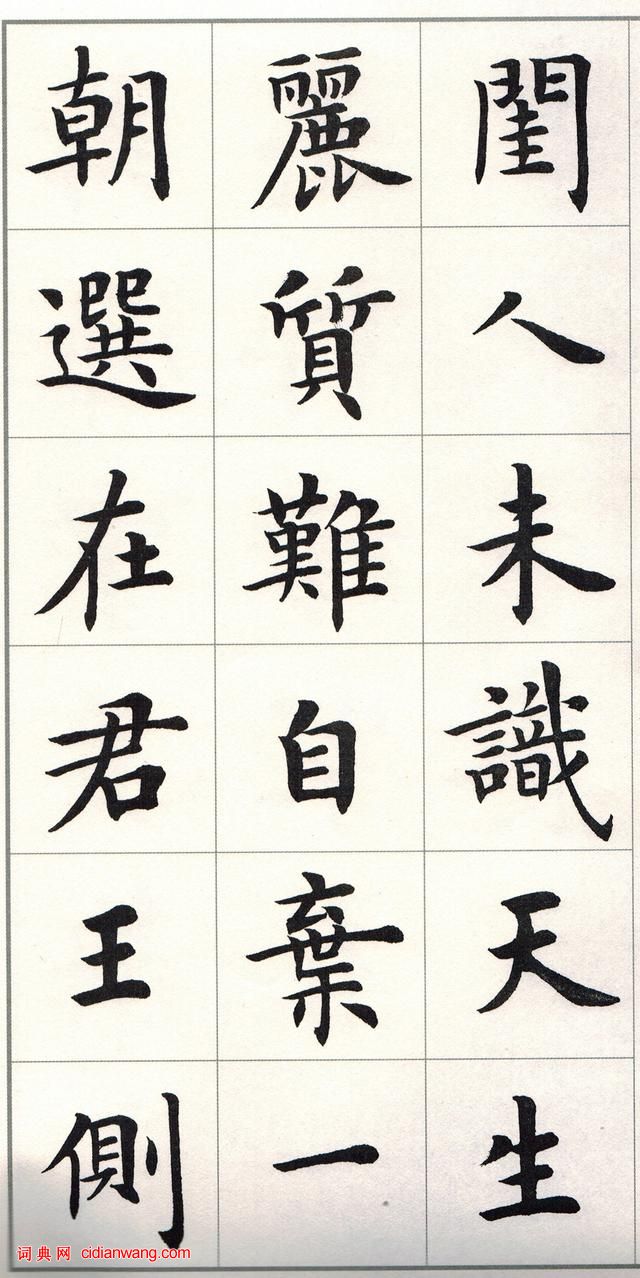 閨人未識天生
麗質難自棄一
朝選在君王側
词典网 cidianwang.com